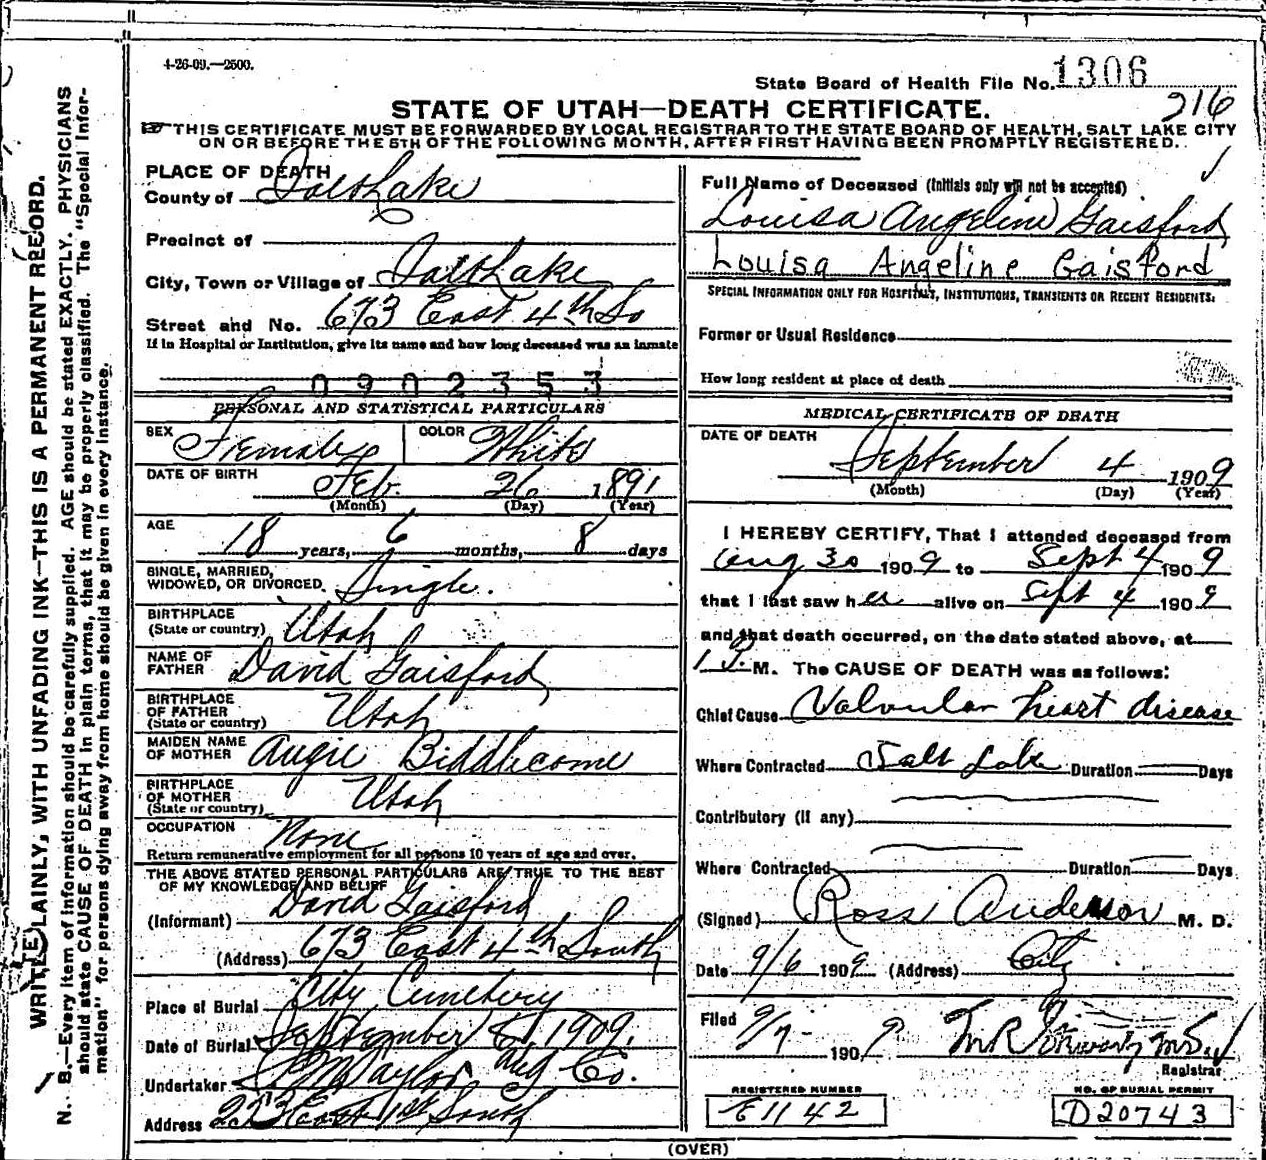 4-26-09.—2500.
State Board of Health File No. 1306
216
STATE OF UTAH—DEATH CERTIFICATE.
THIS CERTIFICATE MUST BE FORWARDED BY LOCAL REGISTRAR TO THE STATE BOARD OF HEALTH, SALT LAKE CITY
ON OR BEFORE THE 5TH OF THE FOLLOWING MONTH, AFTER FIRST HAVING BEEN PROMPTLY REGISTERED.
PLACE OF DEATH
County of Salt Lake
Precinct of
City, Town or Village of Salt Lake
Street and No. 673 East 4th So
If in Hospital or Institution, give its name and how long deceased was an inmate
0902353
PERSONAL AND STATISTICAL PARTICULARS
SEX Female COLOR White
DATE OF BIRTH Feb. 26 1891
(Month) (Day) (Year)
AGE 18 years, 6 months, 8 days
SINGLE, MARRIED,
WIDOWED, OR DIVORCED. Single.
BIRTHPLACE
(State or country) Utah
NAME OF
FATHER David Gaisford
BIRTHPLACE
OF FATHER
(State or country) Utah
MAIDEN NAME
OF MOTHER Angie Biddlecome
BIRTHPLACE
OF MOTHER
(State or country) Utah
OCCUPATION None
Return remunerative employment for all persons 10 years of age and over.
THE ABOVE STATED PERSONAL PARTICULARS ARE TRUE TO THE BEST
OF MY KNOWLEDGE AND BELIEF
(Informant) David Gaisford
(Address) 673 East 4th South
Place of Burial City Cemetery
Date of Burial September 1909.
Undertaker Taylor Co.
Address 223 East 1st South
Full Name of Deceased (Initials only will not be accepted)
Louisa Angeline Gaisford
Louisa Angeline Gaisford
SPECIAL INFORMATION ONLY FOR HOSPITALS, INSTITUTIONS, TRANSIENTS OR RECENT RESIDENTS.
Former or Usual Residence
How long resident at place of death
MEDICAL CERTIFICATE OF DEATH
DATE OF DEATH
September 4 1909
(Month) (Day) (Year)
I HEREBY CERTIFY, That I attended deceased from
Aug 30 1909 to Sept 4 1909
that I last saw her alive on Sept 4 1909
and that death occurred, on the date stated above, at
1 P. M. The CAUSE OF DEATH was as follows:
Chief Cause Valvular heart disease
Where Contracted Salt Lake Duration Days
Contributory (if any)
Where Contracted Duration Days
(Signed) Ross Anderson M. D.
Date 9/6 1909 (Address) City
Filed 9/7- 1909
Registrar
REGISTERED NUMBER
E1142
NO. OF BURIAL PERMIT
D20743
(OVER)
WRITE PLAINLY, WITH UNFADING INK—THIS IS A PERMANENT RECORD.
N. B.—Every item of information should be carefully supplied. AGE should be stated EXACTLY. PHYSICIANS
should state CAUSE OF DEATH in plain terms, that it may be properly classified. The "Special Infor-
mation" for persons dying away from home should be given in every instance.